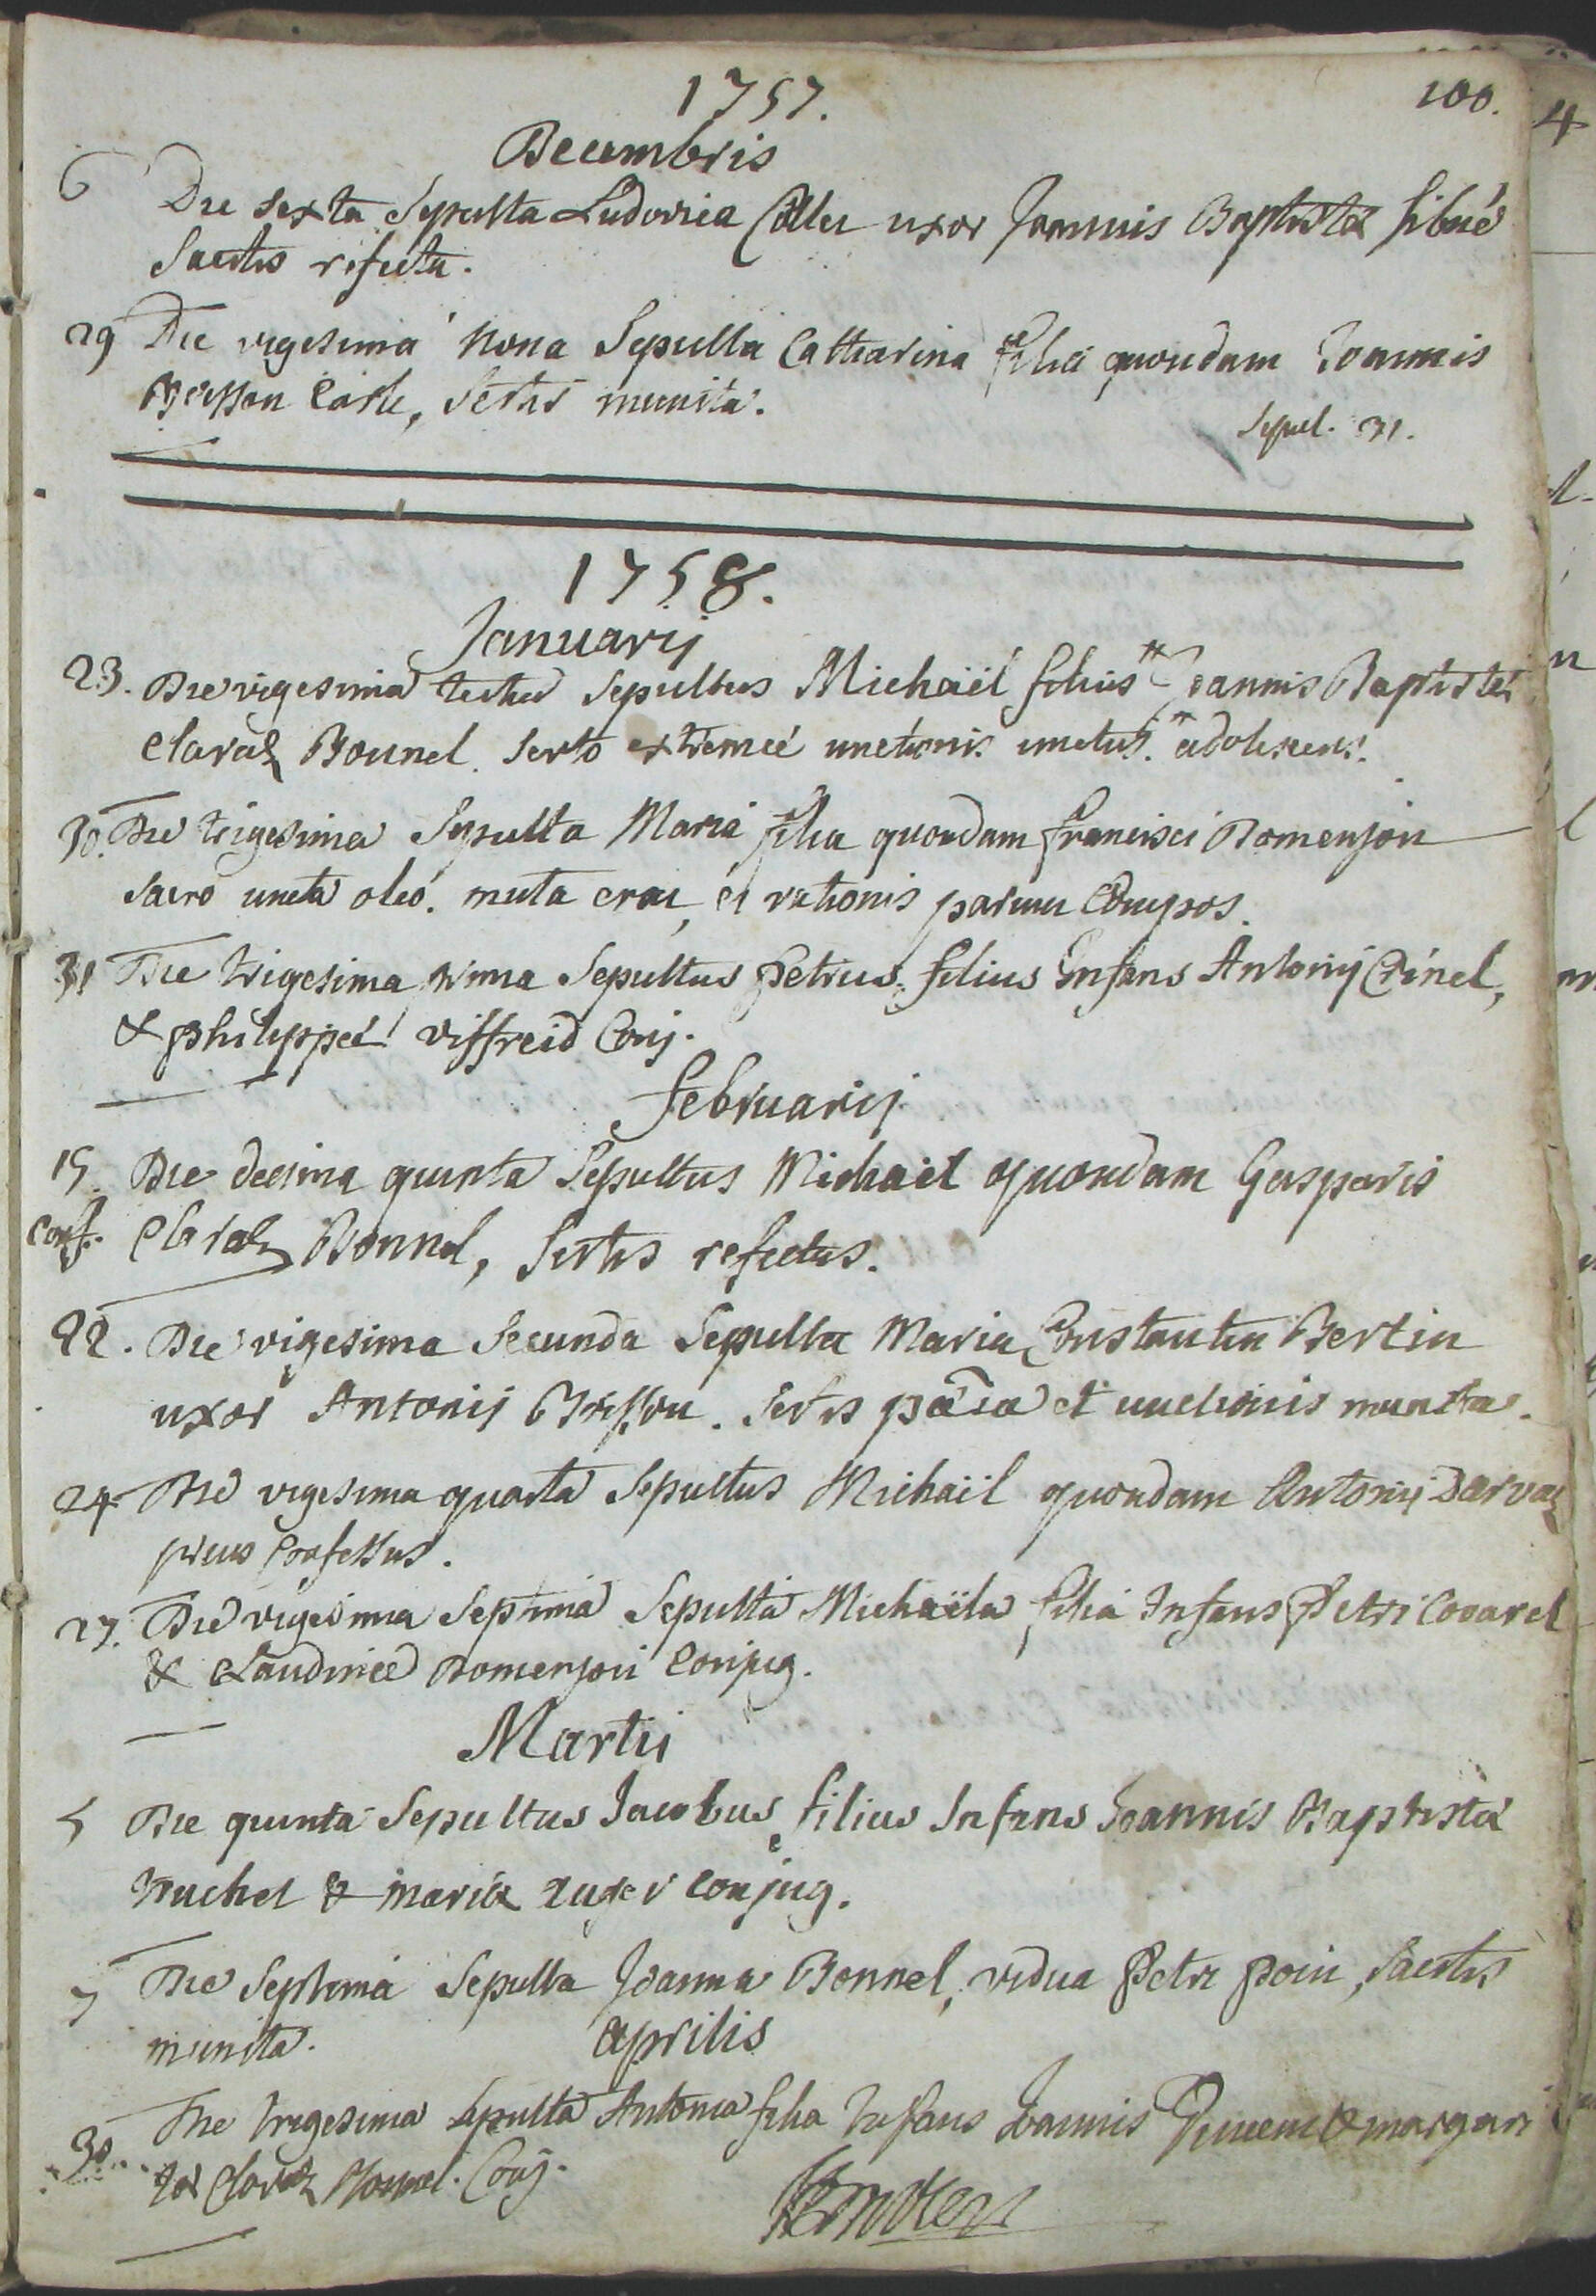 1757. 100.
Decembris
6 Die sexta Sepulta Ludovica Collet uxor Joannis Baptistæ
Sactis refecta.
29 Die vigesima nona Sepulta Catharina filia quondam Joannis
Brisson Carle, Sctis munita.
Sepul. 31.
1758.
Januarij
23. Die vigesima tertia Sepultus Michaël filius Joannis Baptistæ
Claraz Bonnel. Scto extremæ unctionis unctus. adolescens.
30. Die trigesima Sepulta Maria filia quondam Francisci Domenjon
sacro uncta oleo. muta erat, et rationis parum compos.
31 Die trigesima prima Sepultus Petrus, filius Infans Antonij Tinel,
& Philippæ Viffreid Conj.
februarij
15. Die decima quinta Sepultus Michaël quondam Gasparis
conf. Claraz Bonnel, Sctis refectus.
22. Die vigesima Secunda Sepulta Maria Constantin Bertin
uxor Antonij Brisson. Sctis et unctionis munita.
24 Die vigesima quarta Sepultus Michaël quondam Antonij Darvaz
prius confessus.
27. Die vigesima Septima Sepulta Michaëla filia Infans Petri Covarel
& Claudinæ Domenjon Conjug.
Martii
5 Die quinta Sepultus Jacobus filius Infans Joannis Baptistæ
Truchet & Mariæ conjug.
7 Die Septima Sepulta Joanna Bonnel, vidua Petri Poin, Sactis
munita. Aprilis
30 Die trigesima Sepulta Antonia filia Infans Joannis Vincent & margari
tæ Claraz Bonnel. Conj.